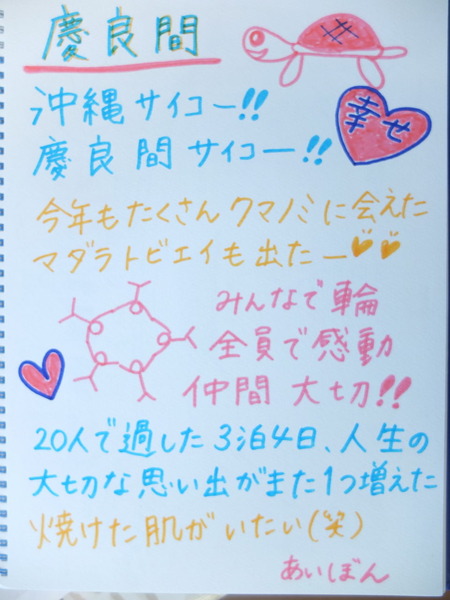 慶良間
沖縄サイコー!!
幸せ
慶良間サイコー!!
今年もたくさんクマノミに会えた
マダラトビエイも出たー
みんなで輪
全員で感動
仲間 大切!!
20人で過した3泊4日、人生の
大切な思い出がまた1つ増えた
焼けた肌がいたい(笑)
あいぼん